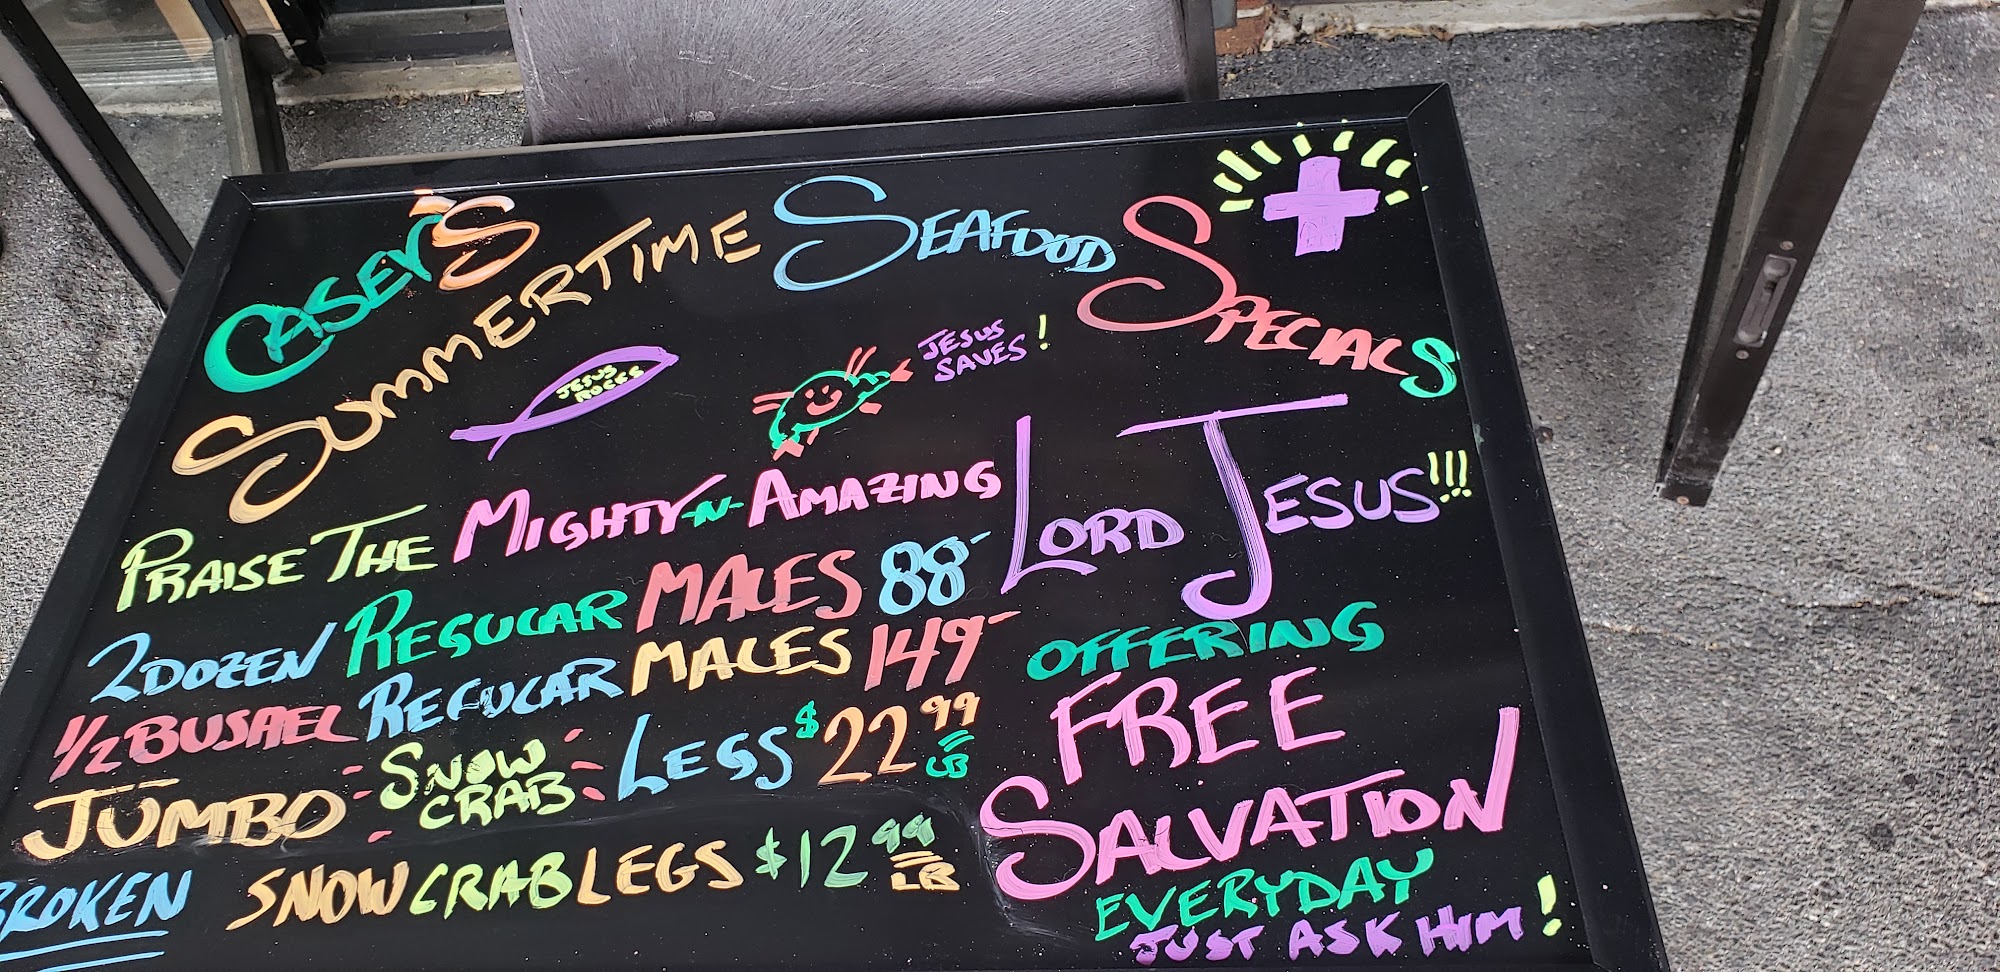 CASEY'S
SUMMERTIME SEAFOOD SPECIALS
JESUS ROCKS
JESUS SAVES!
PRAISE THE MIGHTY-N-AMAZING LORD JESUS!!!
2 DOZEN REGULAR MALES 88-
1/2 BUSHEL REGULAR MALES 149-
JUMBO SNOW CRAB LEGS $22.99 LB
BROKEN SNOW CRAB LEGS $12.99 LB
OFFERING
FREE
SALVATION
EVERYDAY
JUST ASK HIM!